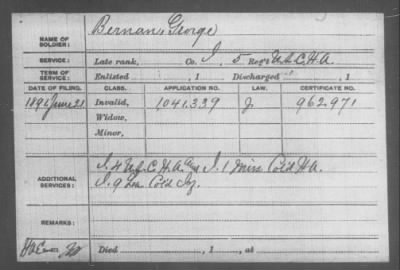 NAME OF SOLDIER: Bernan, George
SERVICE: Late rank, Co. I, 5 Reg't U.S.C.H.A.
TERM OF SERVICE: Enlisted , 1 Discharged , 1
DATE OF FILING. CLASS. APPLICATION NO. LAW. CERTIFICATE NO.
1891 June 21 Invalid, 1,041,339 J 962.971
Widow,
Minor,
ADDITIONAL SERVICES: I. 4 U.S.C.H.A. & I. 1 Miss Cold H.A.
I. 9 La. Cold Inf.
REMARKS:
Died , 1 , at